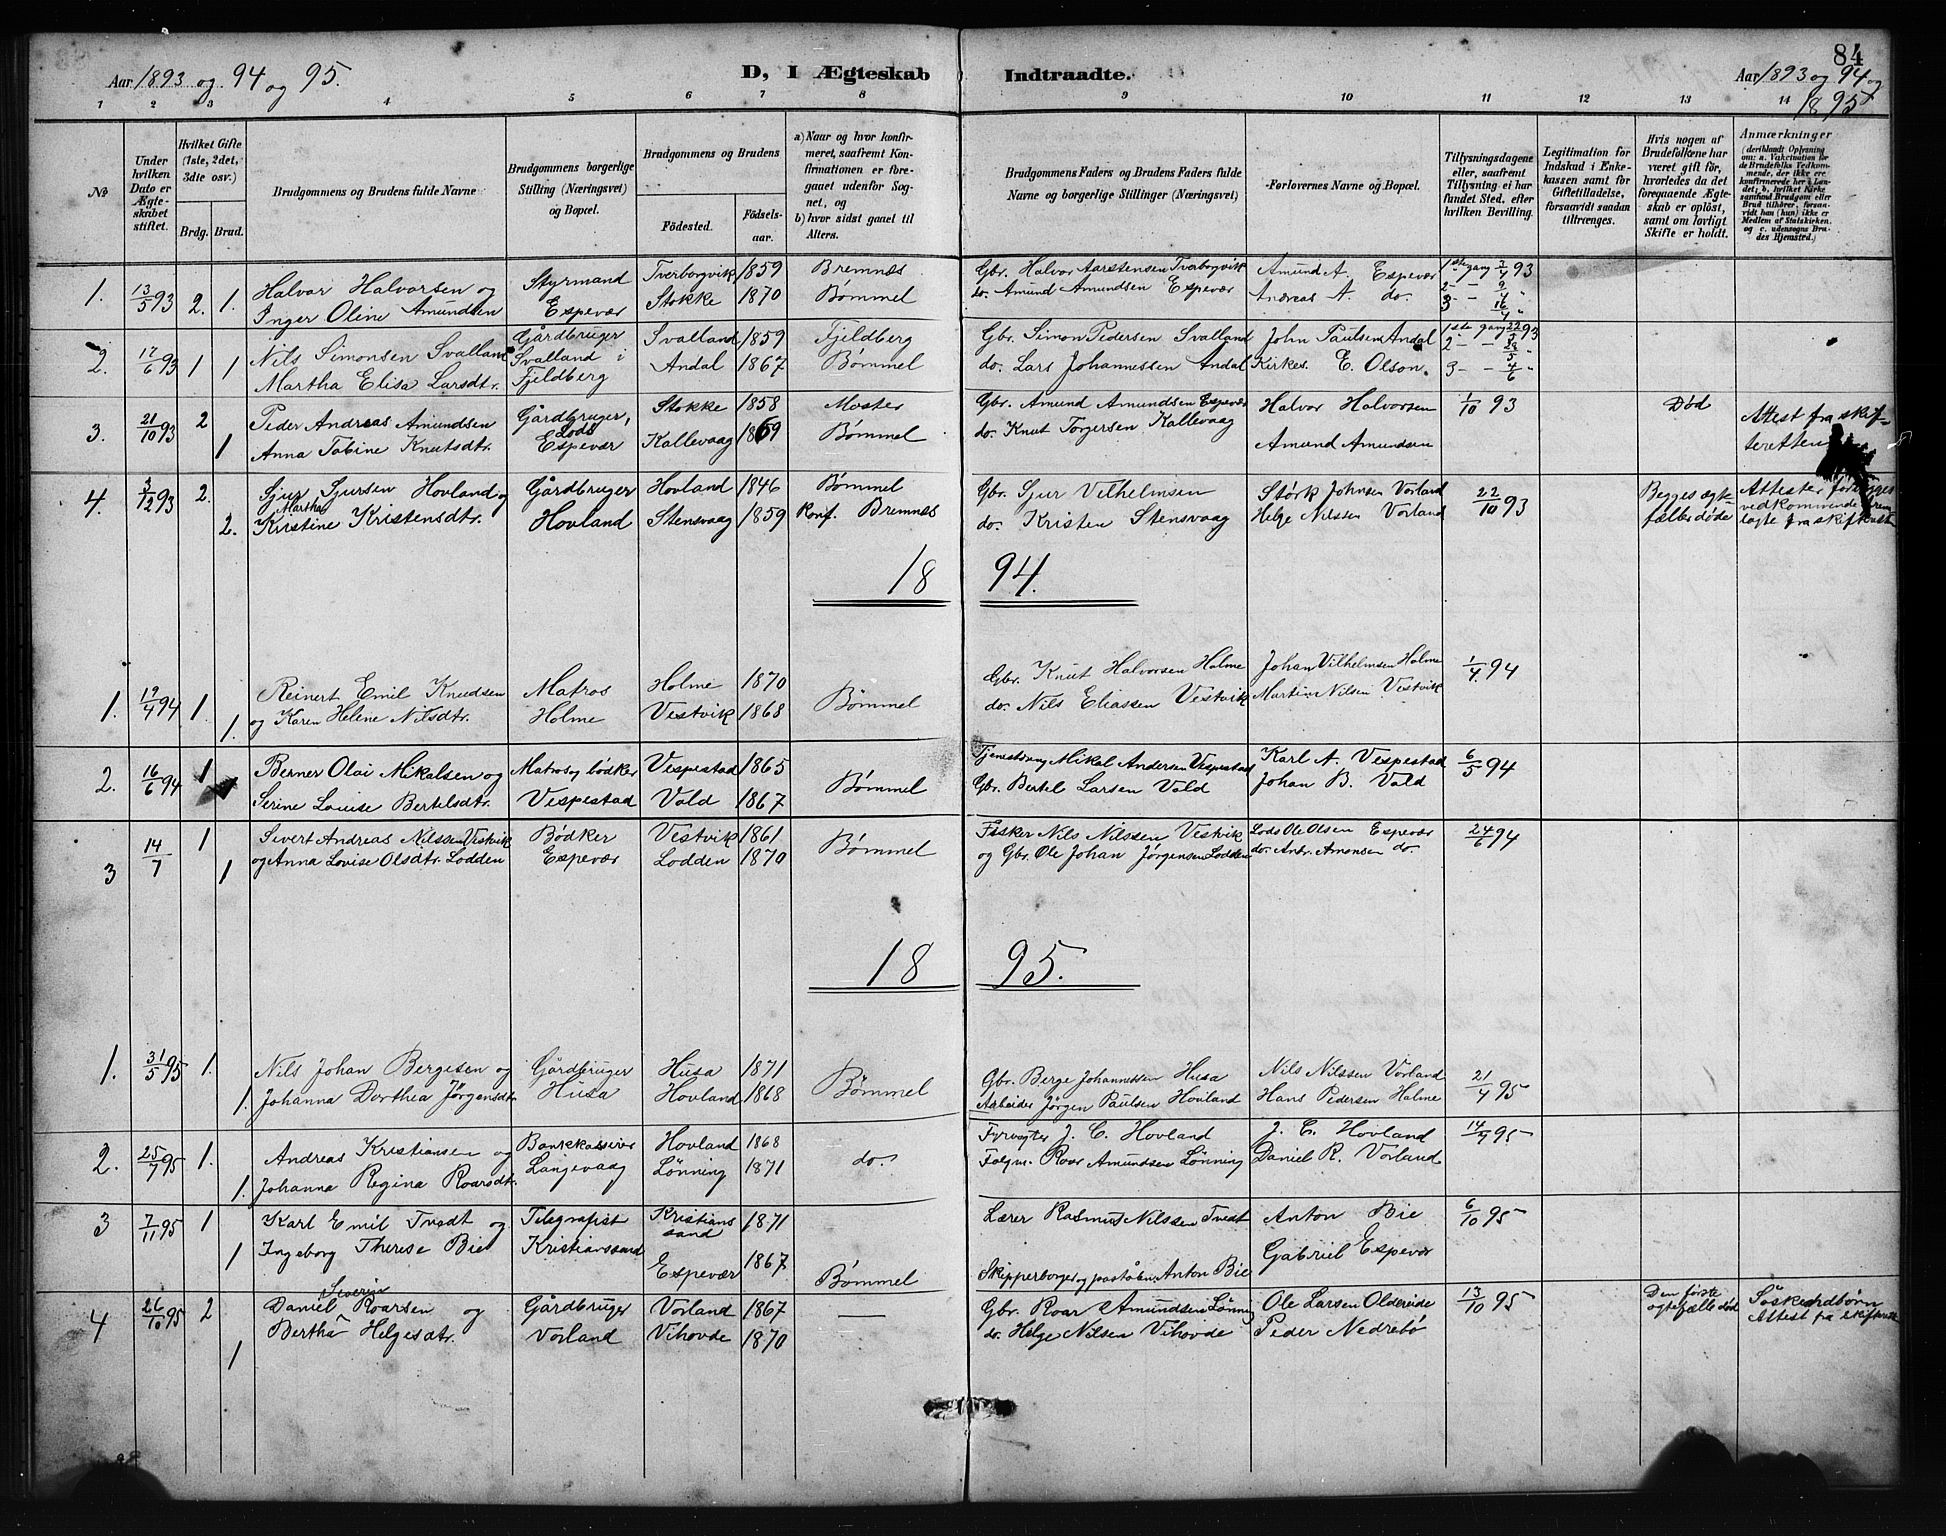 84
Aar 1893 og 94 og 95.
D, I Ægteskab Indtraadte.
Aar 1893 og 94 og
1895
1 2 3 4 5 6 7 8 9 10 11 12 13 14
№
Under hvilken Dato er Ægteskabet stiftet.
Hvilket Gifte (1ste, 2det, 3die osv.)
Brdg. Brud.
Brudgommens og Brudens fulde Navne
Brudgommens borgerlige Stilling (Næringsvei) og Bopæl.
Brudgommens og Brudens
Fødested. Fødselsaar.
a) Naar og hvor konfirmeret, saafremt Konfirmationen er foregaaet udenfor Sognet, og
b) hvor sidst ganet til Alters.
Brudgommens Faders og Brudens Faders fulde Navne og borgerlige Stillinger (Næringsvei)
Forlovernes Navne og Bopæl.
Tillysningsdagene eller, saafremt Tillysning ei har fundet Sted, efter hvilken Bevilling.
Legitimation for Indskud i Enkekassen samt for Giftetilladelse, forsaavidt saadan tiltrænges.
Hvis nogen af Brudefolkene har været gift før, hvorledes da det foregaaende Ægteskab er opløst, samt om lovligt Skifte er holdt.
Anmærkninger
(deriblandt Oplysning om: a. Vaksination for de Brudefolks Vedkommende, der ikke ere konfirmerede her i Landet; b. hvilket Kirkesamfund Brudgom eller Brud tilhører, forsaavidt han (hun) ikke er Medlem af Statskirken, og c. udensogns Brudes Hjemsted.)
1. 13/5 93 2. 1. Halvor Halvorsen og Styrmand Tverborgvik 1859 Bremnæs Gbr. Halvor Aarstensen Tverborgvik Amund A. Espevær 1ste gang 3/4 93
Inger Oline Amundsen Espevær Stokke 1870 Bømmel do. Amund Amundsen Espevær Andreas A. do. 2 - - 9/4 "
3 - - 16/4 "
2. 17/6 93 1 1 Nils Simonsen Svalland Gårdbruger Svalland 1859 Fjeldberg Gbr. Simon Pedersen Svalland John Paulsen Andal 1ste gang 22/5 93
Martha Elisa Larsdtr. Svalland i Fjeldberg Andal 1867 Bømmel do. Lars Johannessen Andal Kirkes. E. Olson. 2 - -
3 - - 4/6 "
3. 21/10 93 2 Peder Andreas Amundsen Gårdbruger, Stokke 1858 Moster Gbr. Amund Amundsen Espevær Halvor Halvorsen 1/10 93 Død Attest fra skif-
1 Anna Tobine Knutsdtr. Lods Espevær Kallevaag 1869 Bømmel do. Knut Torgersen Kallevaag Amund Amundsen teretten
4. 3/12 93 2. Sjur Sjursen Hovland og Gårdbruger Hovland 1846 Bømmel Gbr. Sjur Vilhelmsen Størk Johnsen Vorland 22/10 93 Begges ægte- Attester for begges
2. Martha Kristine Kristensdtr. Hovland Stensvaag 1859 Konf. Bremnæs do. Kristen Stensvaag Helge Nilssen Vorland fæller døde vedkommende frem
lagte fra skifteret
18 94.
1. 19/4 94 1. Reinert Emil Knudsen Matros Holme 1870 Bømmel Gbr. Knut Halvorsen Holme Johan Vilhelmsen Holme 1/4 94
1. og Karen Helene Nilsdtr. Holme Vestvik 1868 do. Nils Eliassen Vestvik Martin Nilsen Vestvik
2. 16/6 94 1 Berner Olai Mikalsen og Matros og bødker Vespestad 1865 Bømmel Tjenestdreng Mikal Andersen Vespestad Karl A. Vespestad 6/5 94
Serine Louise Bertelsdtr. Vespestad Vold 1867 Gbr. Bertel Larsen Vold Johan B. Vold
3 14/7 1 Sivert Andreas Nilssen Vestvik Bødker Vestvik 1861. Bømmel Fisker Nils Nilssen Vestvik Lods Ole Olsen Espevær 24/6 94
1 og Anna Lovise Olsdtr. Lodden Espevær Lodden 1870 og Gbr. Ole Johan Jørgensen Lodden do. Andr. Amonsen do.
18 95.
1. 31/5 95 1. Nils Johan Bergesen og Gårdbruger Husa 1871 Bømmel Gbr. Berge Johannessen Husa Nils Nilssen Vorland 21/4 95
1. Johanna Dorthea Jørgensdtr. Husa Hovland 1868 Arbeider Jørgen Paulsen Hovland Hans Pedersen Holme
2. 25/7 95 1. Andreas Kristiansen og Bankkasserer Hovland 1868 do. Fyrvogter J. C. Hovland J. C. Hovland 14/7 95
1. Johanna Regina Roarsdtr. Langevaag Lønning 1871 Folgm. Roar Amundsen Lønning Daniel R. Vorland
3 7/11 95 1 Karl Emil Tvedt og Telegrafist Kristianssand 1871 Lærer Rasmus Nilssen Tvedt Anton Bie 6/10 95
1 Ingeborg Therese Bie Kristianssand Espevær 1867 Bømmel Skipperborger og poståbner Anton Bie Gabriel Espevær
4 26/10 95 2 Daniel Severin Roarsen og Gårdbruger Vorland 1867 — Gbr. Roar Amundsen Lønning Ole Larsen Oldereide 13/10 95 Den første Søskendbørn
1 Bertha Helgesdtr. Vorland Vihovde 1870 do. Helge Nilsen Vihovde Peder Nedrebø ægtefælle død Attest fra skifteret